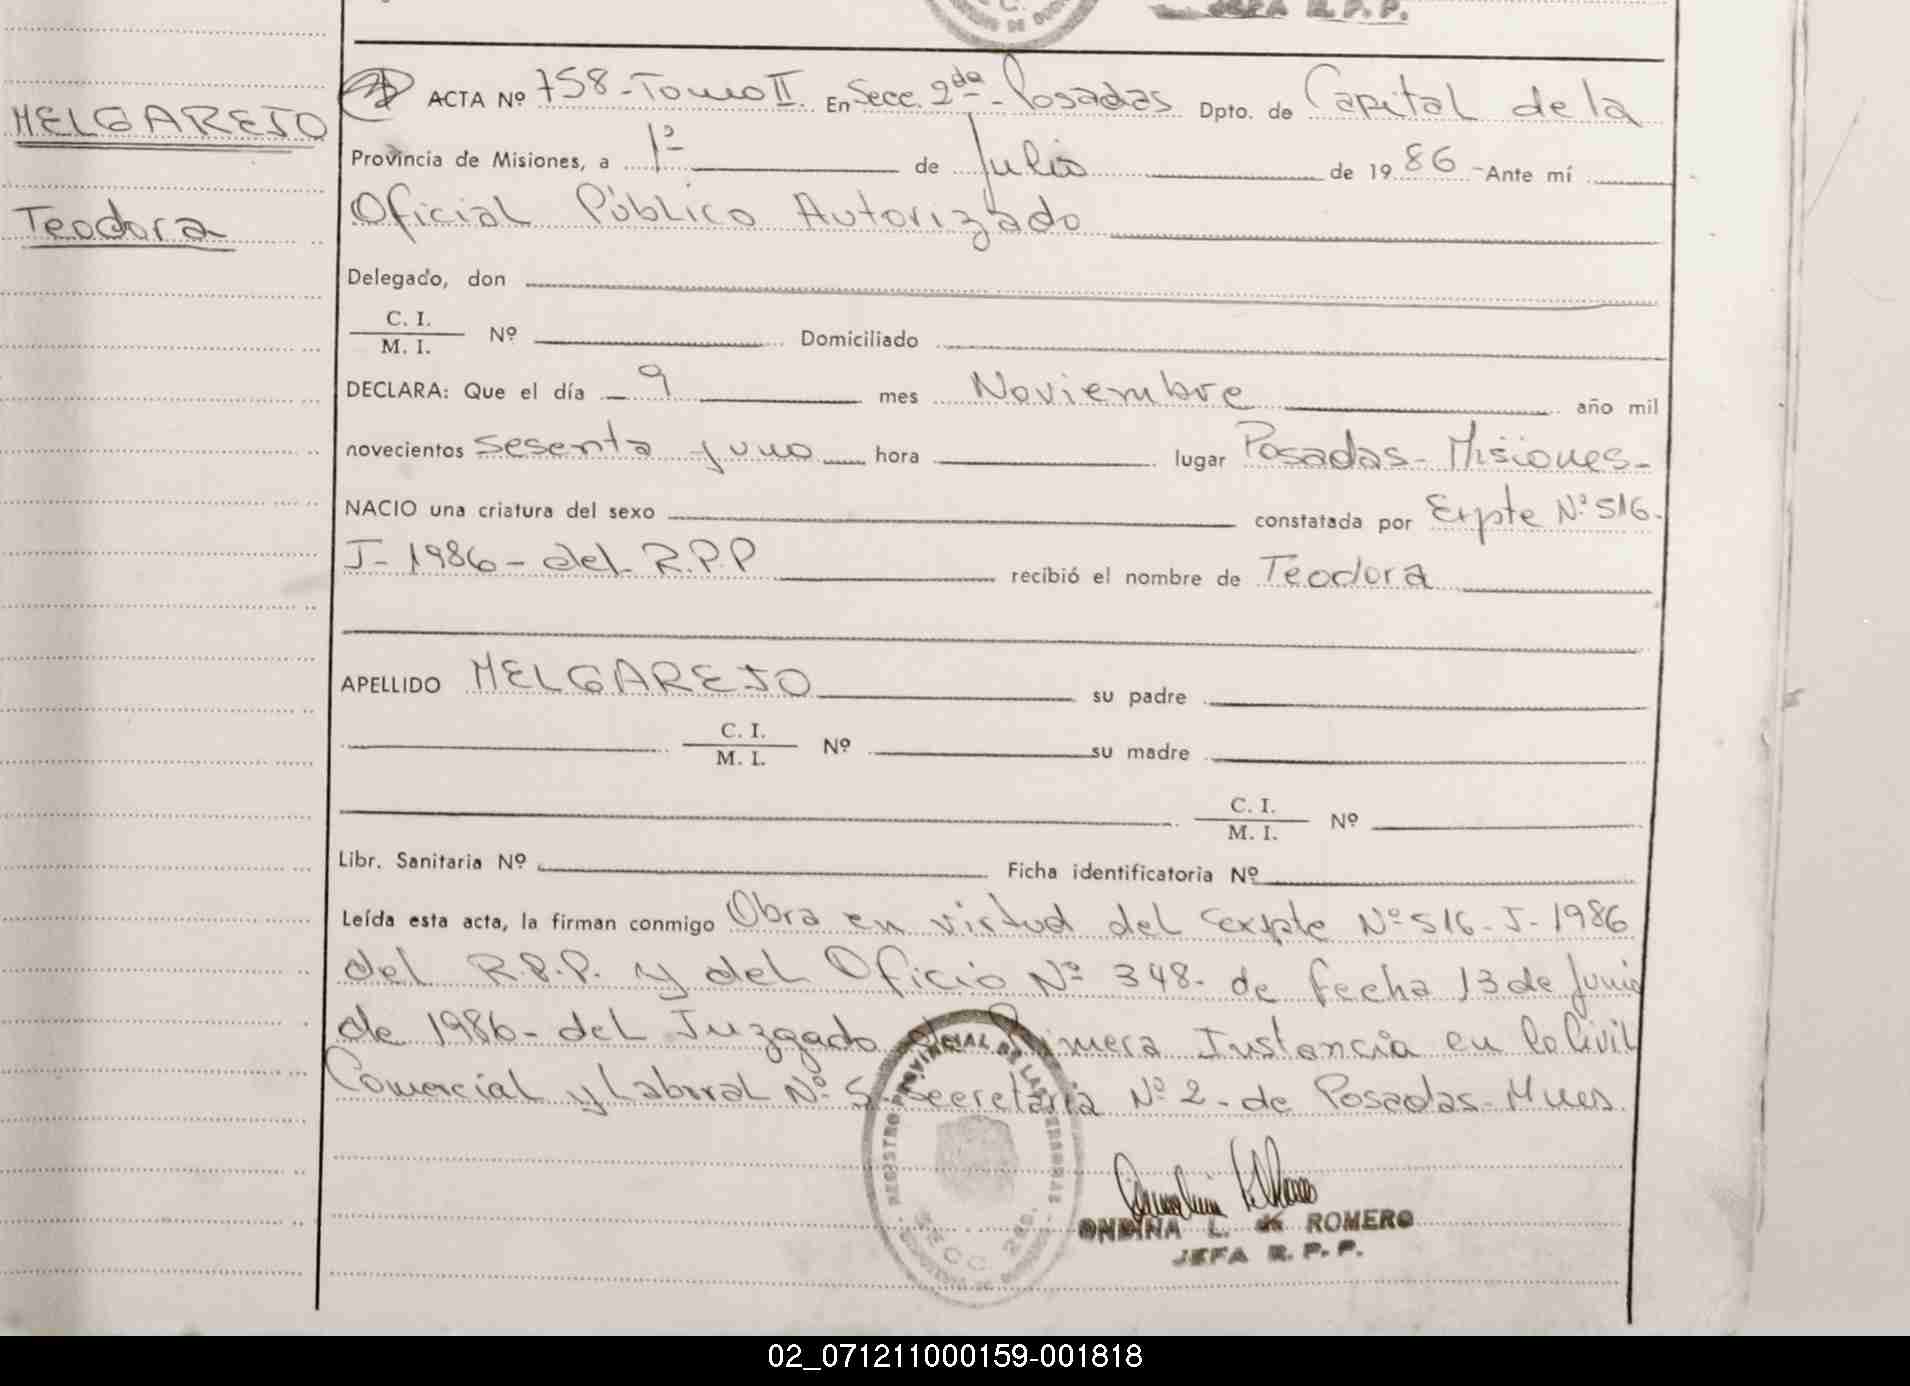 JEFA R. P. P.
MELGAREJO
Teodora
ACTA Nº 758 - Tomo II. En Secc. 2da - Posadas Dpto. de Capital de la
Provincia de Misiones, a 1º de Julio de 1986 - Ante mí
Oficial Público Autorizado
Delegado, don
C. I.
M. I. Nº Domiciliado
DECLARA: Que el día 9 mes Noviembre año mil
novecientos sesenta y uno hora lugar Posadas - Misiones -
NACIO una criatura del sexo constatada por Expte Nº 516 -
J - 1986 - del R.P.P recibió el nombre de Teodora
APELLIDO MELGAREJO su padre
C. I.
M. I. Nº su madre
C. I.
M. I. Nº
Libr. Sanitaria Nº Ficha identificatoria Nº
Leída esta acta, la firman conmigo Obra en virtud del expte Nº 516 - J - 1986
del R.P.P. y del Oficio Nº 348 - de fecha 13 de Junio
de 1986 - del Juzgado de Primera Instancia en lo Civil
Comercial y Laboral Nº 5 - Secretaria Nº 2 - de Posadas - Mnes.
REGISTRO PROVINCIAL DE LAS PERSONAS
SECC. 2da.
ONDINA L. de ROMERO
JEFA R. P. P.
02_071211000159-001818